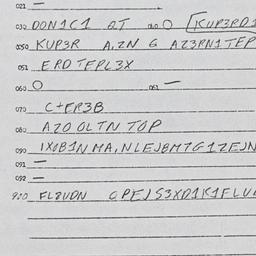 021 —
030 DON1C1 QT 040 O [KUP3RD1
050 KUP3R A,ZN G AZ3RN1TEP
051 ERD TEPL3X
060 O 061 —
070 C+FR3B
080 AZO OLTN TOP
090 1X0B1N MA,NLEJBM7G1ZEJN
091 —
092 —
900 FL8UDN OPEJS3XD1K1FLU